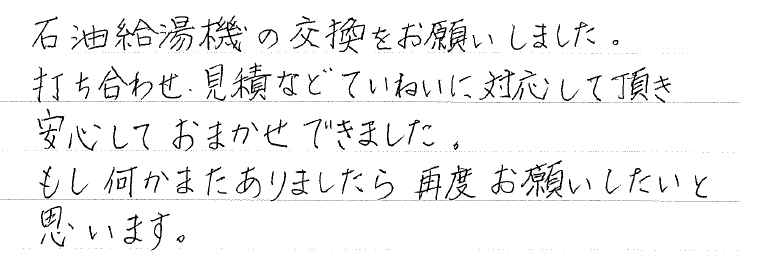 石油給湯機の交換をお願いしました。
打ち合わせ.見積などていねいに対応して頂き
安心しておまかせできました。
もし何かまたありましたら再度お願いしたいと
思います。